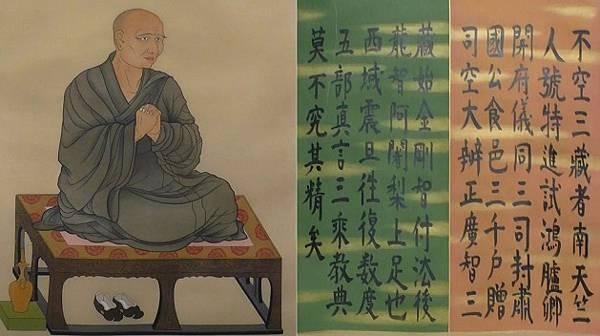 不空三藏者南天竺
人號特進試鴻臚卿
開府儀同三司封肅
國公食邑三千戶贈
司空大辨正廣智三
藏始金剛智付法後
龍智阿闍梨上足也
西域震旦往復数度
五部真言三乘教典
莫不究其精矣